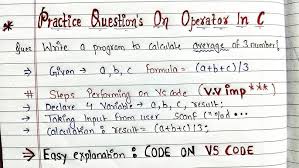 * Practice Question's On Operator In C
Ques Write a program to calculate average of 3 number{
⇒ Given → a, b, c formula = (a+b+c)/3
# Steps Performing on VS code (V.V imp ***)
→ Declare 4 Variable → a, b, c, result;
→ Taking Input from user scanf ("%d
→ Calculation : result = (a+b+c)/3;
⇒ Easy explanation : CODE ON VS CODE